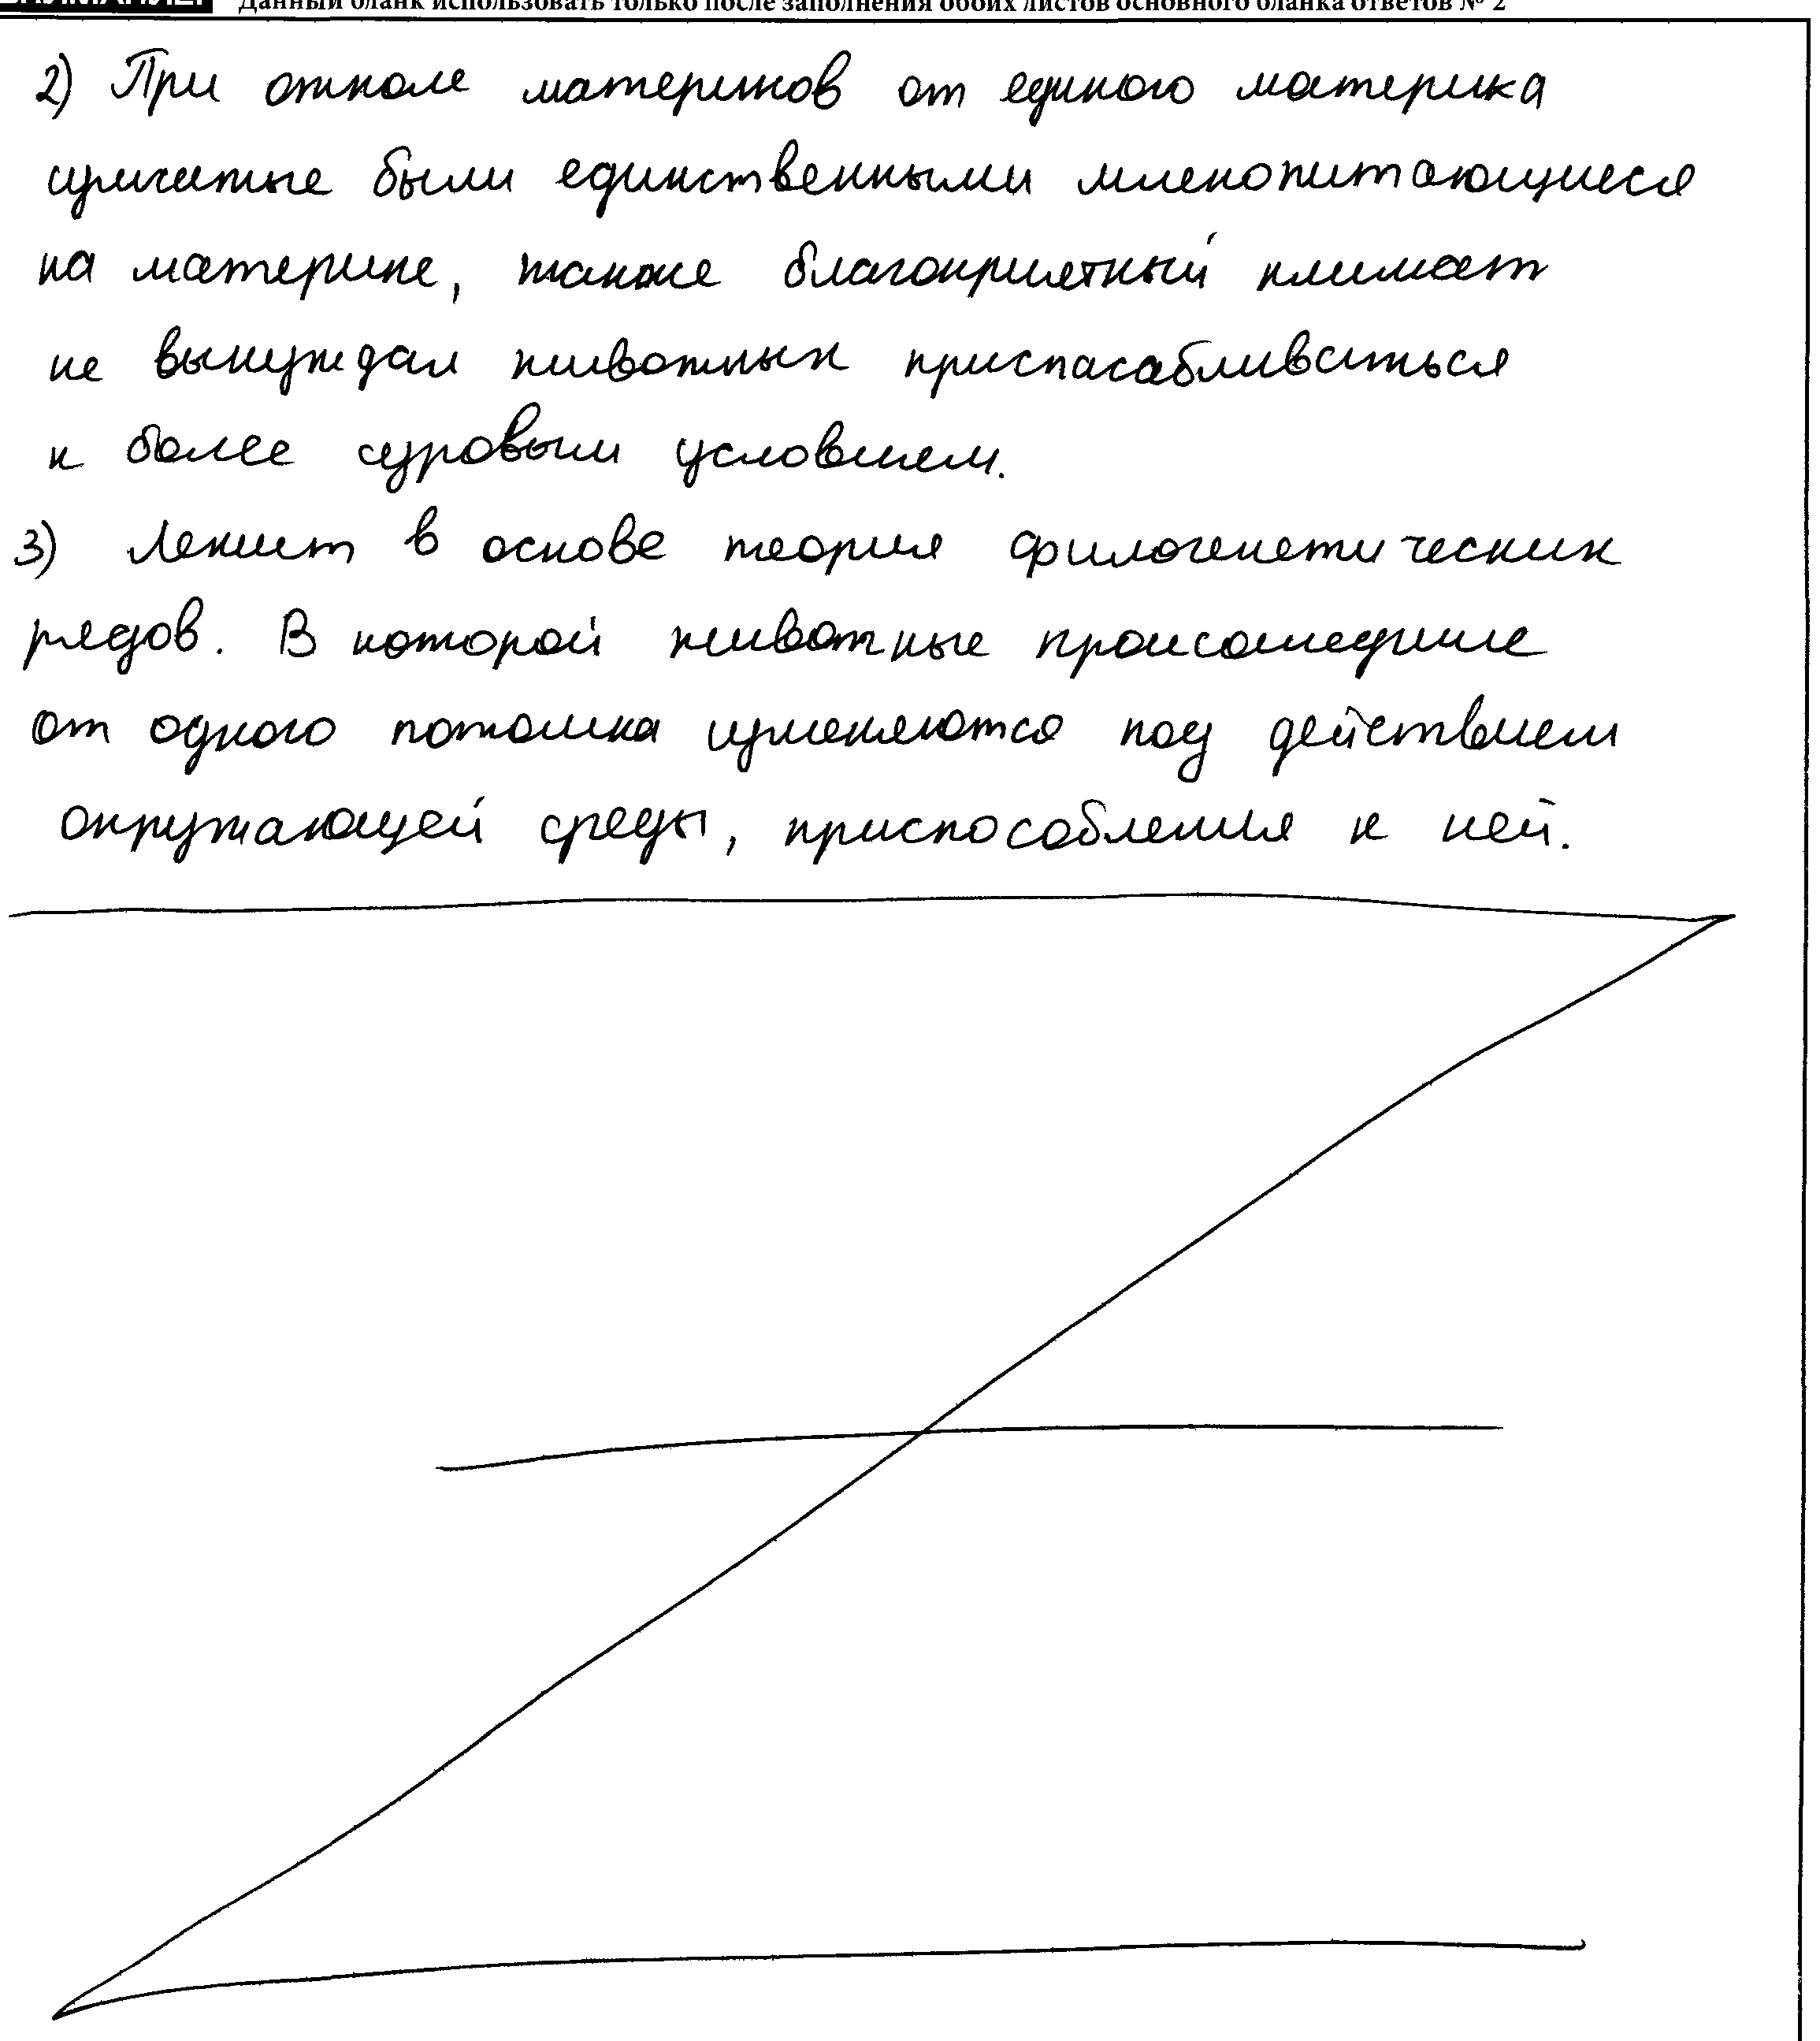 Данный бланк использовать только после заполнения обоих листов основного бланка ответов № 2
2) При отколе материков от единого материка
сумчатые были единственными млекопитающиеся
на материке, также благоприятный климат
не вынуждал животных приспасабливаться
к более суровым условием.
3) Лежит в основе теория филогенетических
рядов. В которой животные произошедшие
от одного потомка изменяются под действием
окружающей среды, приспособления к ней.